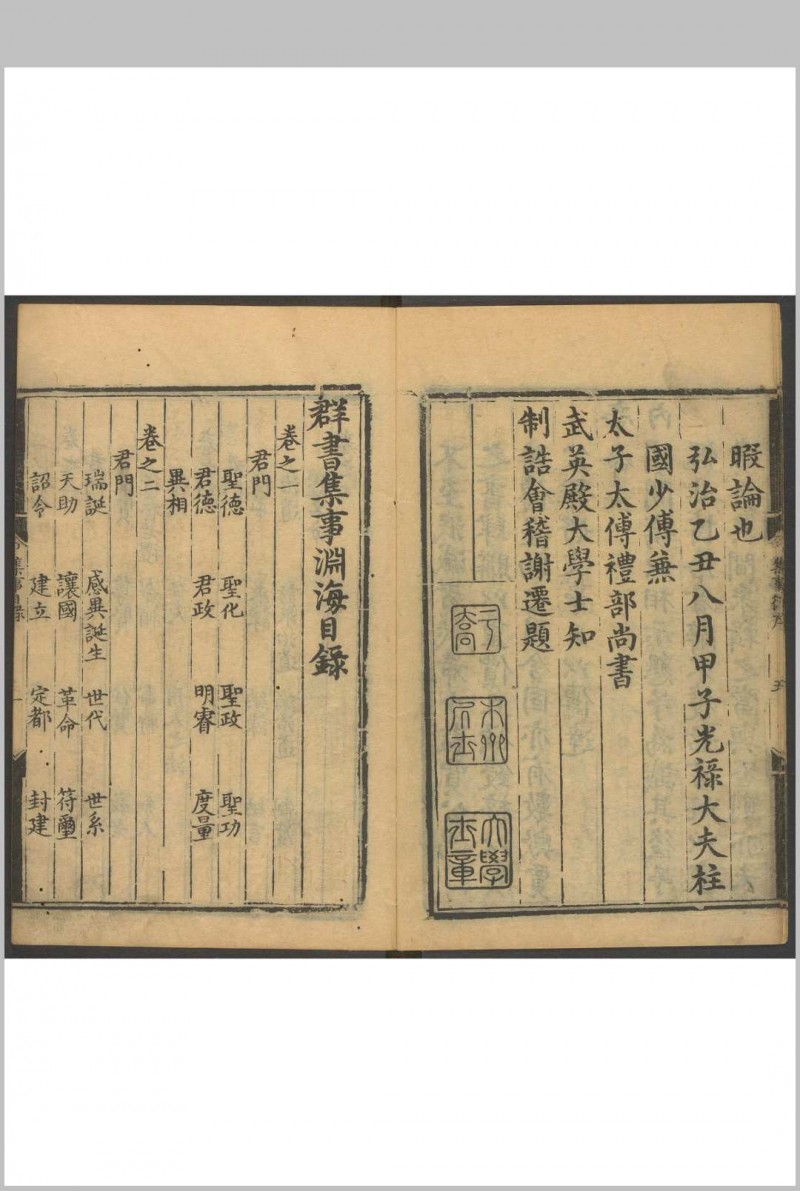 暇論也
弘治乙丑八月甲子光祿大夫柱
國少傅兼
太子太傅禮部尚書
武英殿大學士知
制誥會稽謝遷題
大學士章
群書集事淵海目錄
卷之一
君門
聖德 聖化 聖政 聖功
君德 君政 明睿 度量
異相
卷之二
君門
瑞誕 感異誕生 世代 世系
天助 讓國 革命 符璽
詔令 建立 定都 封建
集事目錄